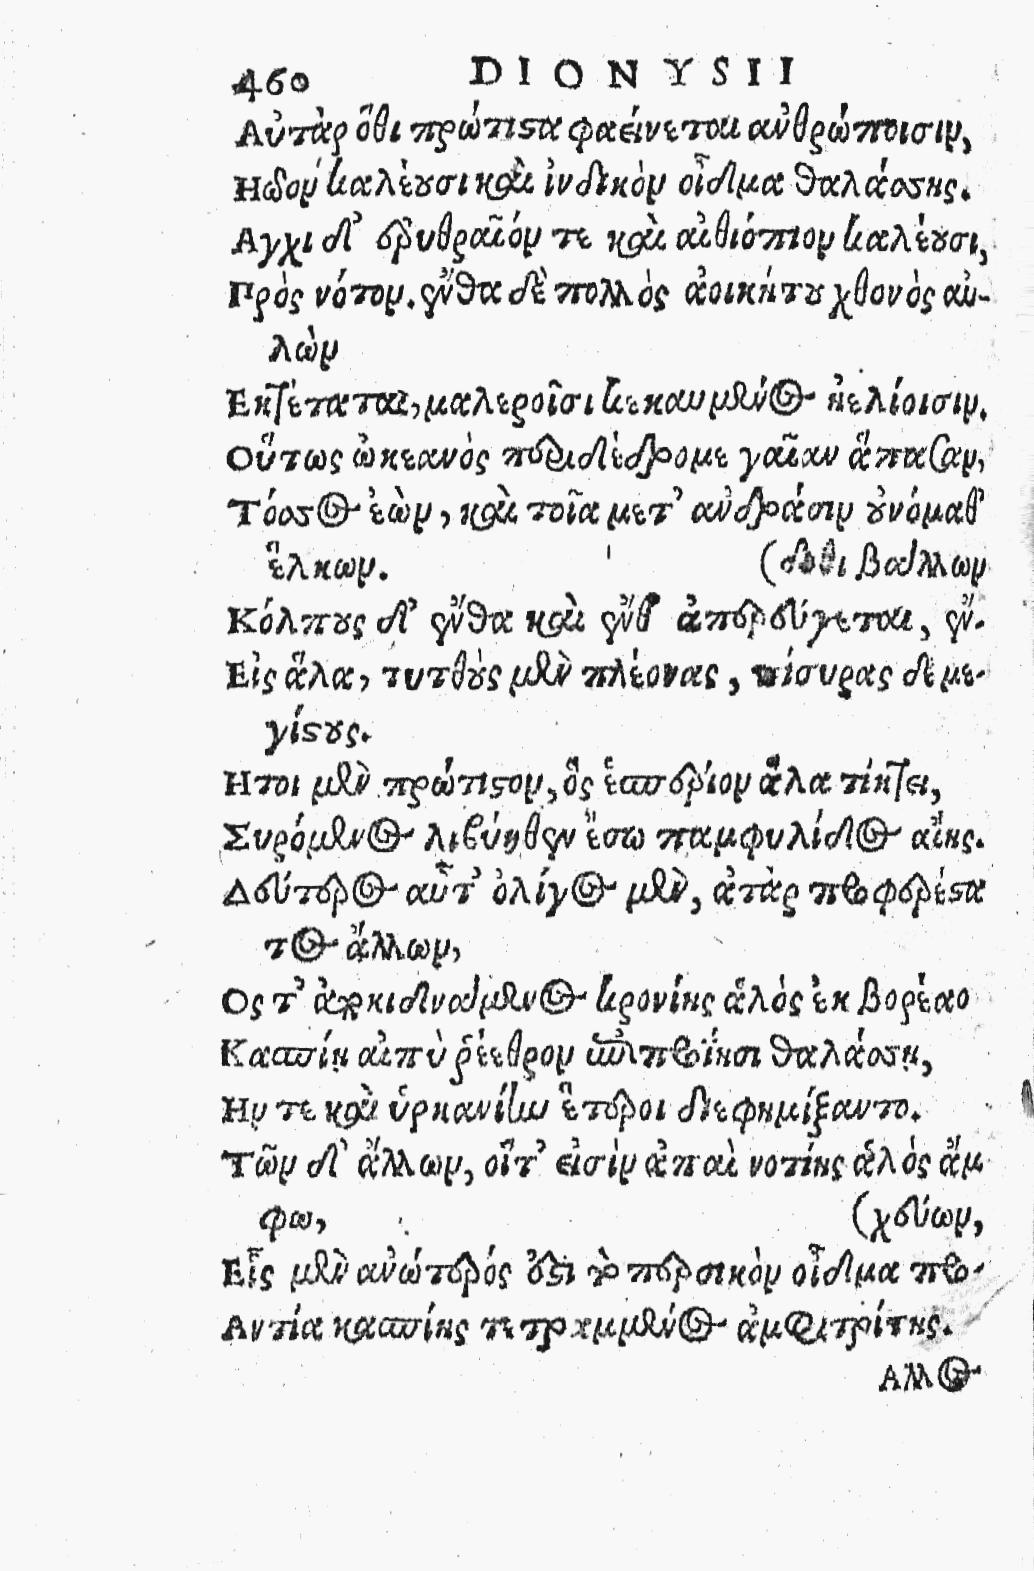 460 DIONYSII
Αὐτὰρ ὅθι πρώτιςα φαείνεται ανθρώποισιν,
Ηῶον καλέουσι καὶ ἰνδικὸν οἶδμα θαλάσσης.
Αγχι δ' ερυθραῖόν τε καὶ αἰθιόπιον καλέουσι,
Πρὸς νότον. ἔνθα δὲ πολλὸς ἀοικήτου χθονὸς αὐ-
λὼν
Εκτέταται, μαλεροῖσι κεκαυμένος ἠελίοισιν.
Οὕτως ὠκεανὸς περιδέδρομε γαῖαν ἅπασαν,
Τόσσος ἐὼν, καὶ τοῖα μετ' ανδράσιν οὐνόμαθ'
ἕλκων. (δοθι βάλλων
Κόλπους δ' ἔνθα καὶ ἔνθ' ἀπερεύγεται, ἔν-
Εἰς ἅλα, τυτθοὺς μὲν πλέονας, πίσυρας δὲ με-
γίςους.
Ητοι μὲν πρώτιςον, ὃς ἑσπερίον ἅλα τίκτει,
Συρόμενος λιβύηθεν ἔσω παμφυλίδος αἴης.
Δεύτερος αὖτ' ὀλίγος μὲν, ἀτὰρ προφερέςα
τος ἄλλων,
Ος τ' ἀποκιδνάμενος κρονίης ἁλὸς ἐκ βορέαο
Κασπίῃ αἰπὺ ῥέεθρον ἐπιπροΐησι θαλάσσῃ,
Ην τε καὶ ὑρκανίην ἕτεροι διεφημίξαντο.
Τῶν δ' ἄλλων, οἵτ' εἰσὶν ἀπαὶ νοτίης ἁλὸς ἄμ
φω, (χεύων,
Εἷς μὲν ανώτερός ἐςι τὸ περσικὸν οἶδμα προ-
Αντία κασπίης τετραμμένος ἀμφιτρίτης.
Αλλος